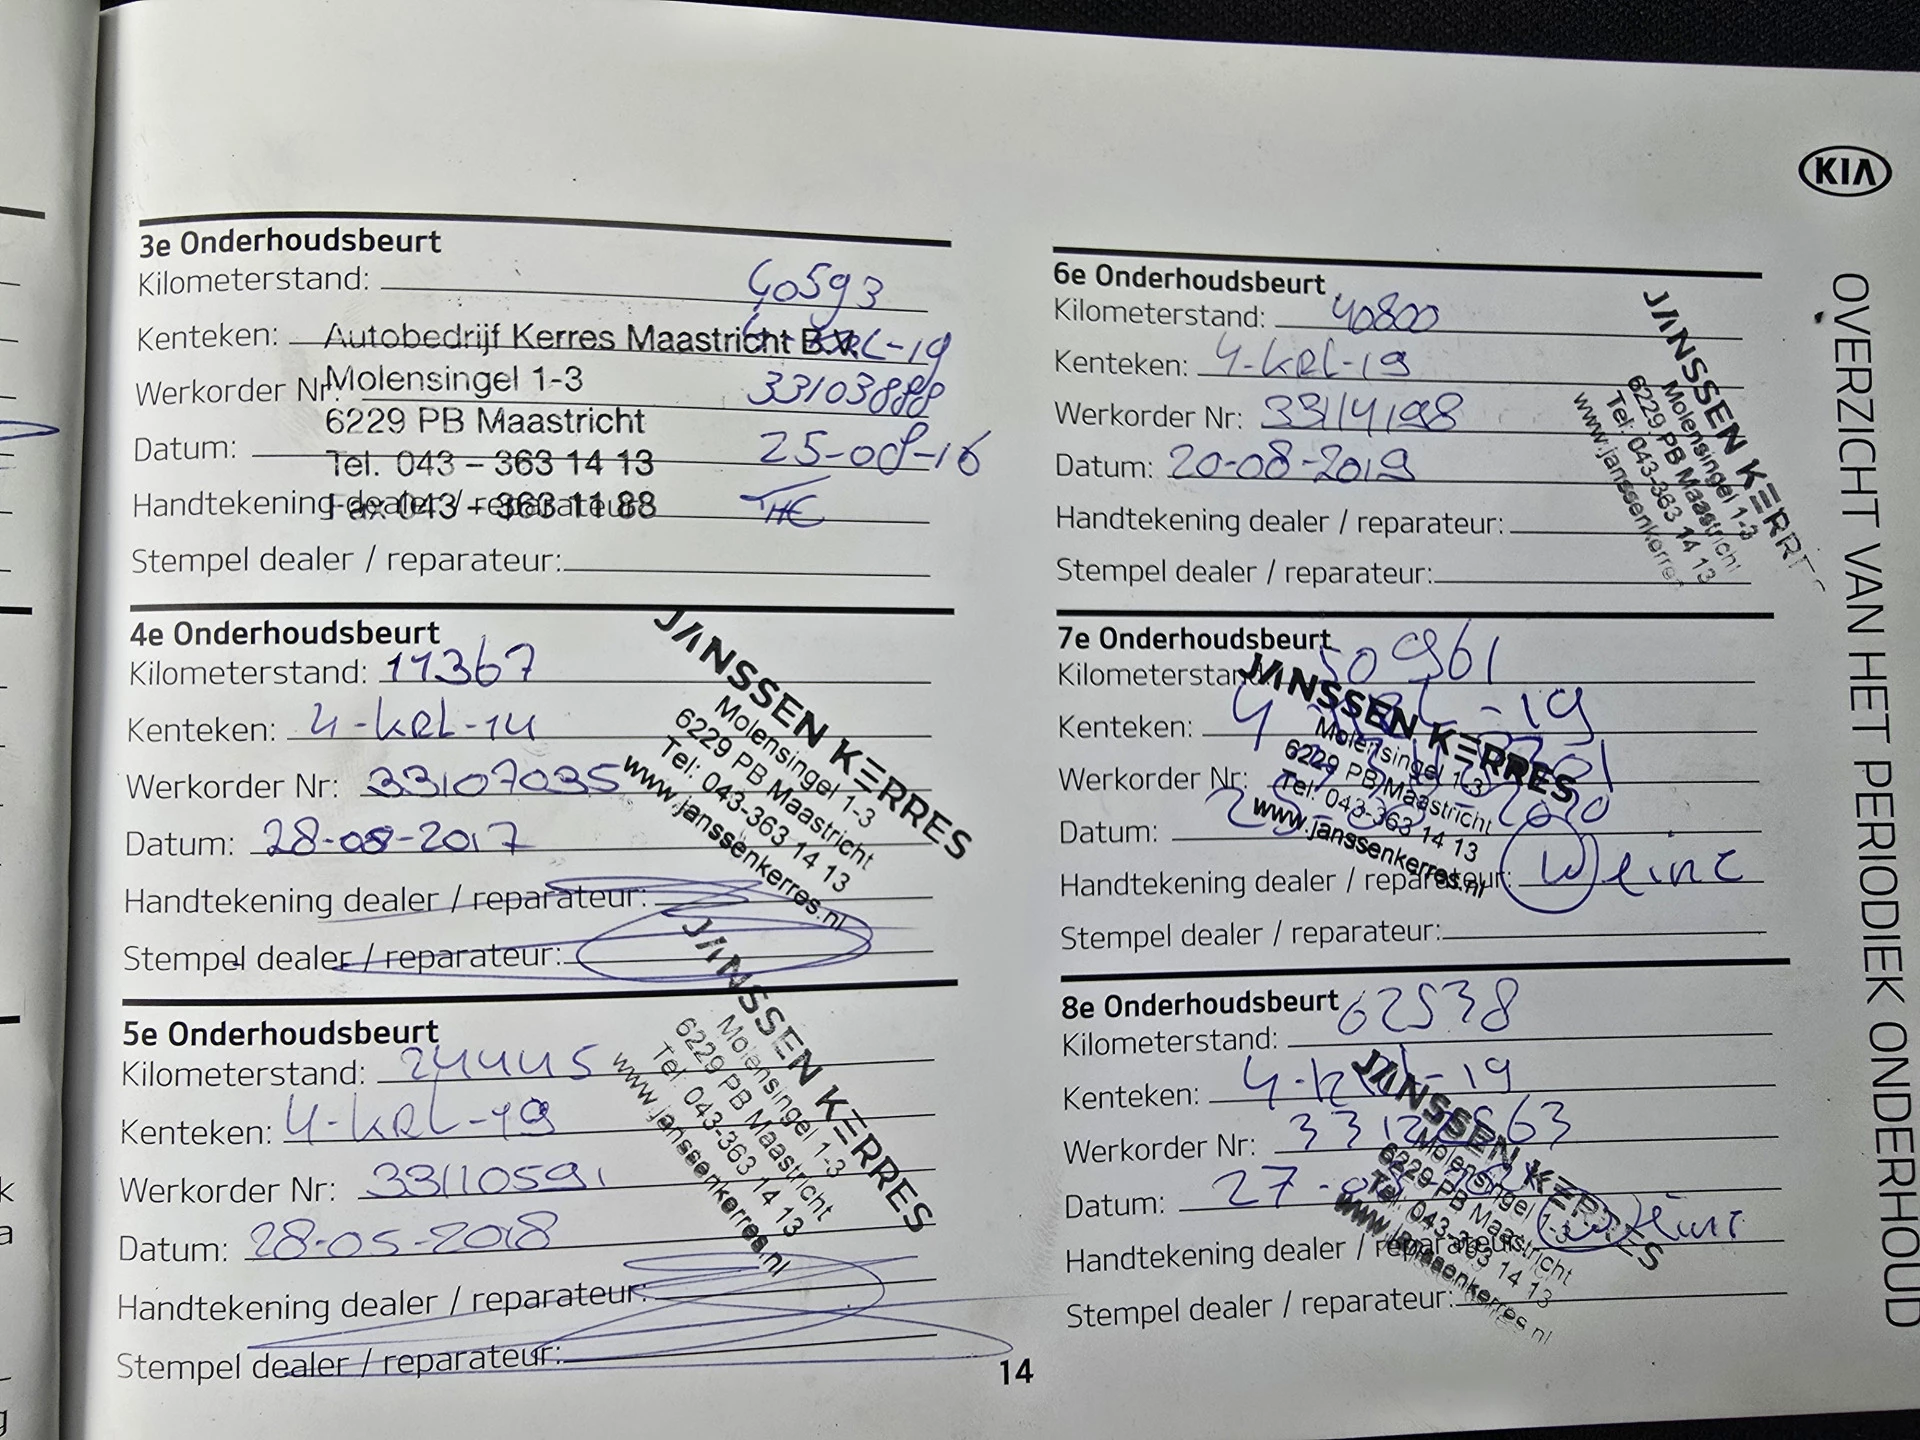 KIA
OVERZICHT VAN HET PERIODIEK ONDERHOUD
3e Onderhoudsbeurt
Kilometerstand: 40593
Kenteken: 4-KRL-19
Autobedrijf Kerres Maastricht B.V.
Werkorder Nr: 33103888
Molensingel 1-3
6229 PB Maastricht
Datum: 25-08-16
Tel. 043 – 363 14 13
Handtekening dealer / reparateur:
Fax 043 – 363 11 88
Stempel dealer / reparateur:
4e Onderhoudsbeurt
Kilometerstand: 11367
Kenteken: 4-KRL-14
Werkorder Nr: 33107035
Datum: 28-08-2017
Handtekening dealer / reparateur:
Stempel dealer / reparateur:
JANSSEN KERRES
Molensingel 1-3
6229 PB Maastricht
Tel: 043-363 14 13
www.janssenkerres.nl
5e Onderhoudsbeurt
Kilometerstand: 24445
Kenteken: 4-KRL-19
Werkorder Nr: 33110591
Datum: 28-05-2018
Handtekening dealer / reparateur:
Stempel dealer / reparateur:
JANSSEN KERRES
Molensingel 1-3
6229 PB Maastricht
Tel: 043-363 14 13
www.janssenkerres.nl
6e Onderhoudsbeurt
Kilometerstand: 40800
Kenteken: 4-KRL-19
Werkorder Nr: 33114198
Datum: 20-08-2019
Handtekening dealer / reparateur:
Stempel dealer / reparateur:
JANSSEN KERRES
Molensingel 1-3
6229 PB Maastricht
Tel: 043-363 14 13
www.janssenkerres
7e Onderhoudsbeurt
Kilometerstand: 50961
Kenteken: 4-KRL-19
Werkorder Nr:
Datum:
Handtekening dealer / reparateur:
Stempel dealer / reparateur:
JANSSEN KERRES
Molensingel 1-3
6229 PB Maastricht
Tel: 043-363 14 13
www.janssenkerres.nl
8e Onderhoudsbeurt
Kilometerstand: 62538
Kenteken: 4-KRL-19
Werkorder Nr:
Datum:
Handtekening dealer / reparateur:
Stempel dealer / reparateur:
JANSSEN KERRES
Molensingel 1-3
6229 PB Maastricht
Tel: 043-363 14 13
www.janssenkerres.nl
14